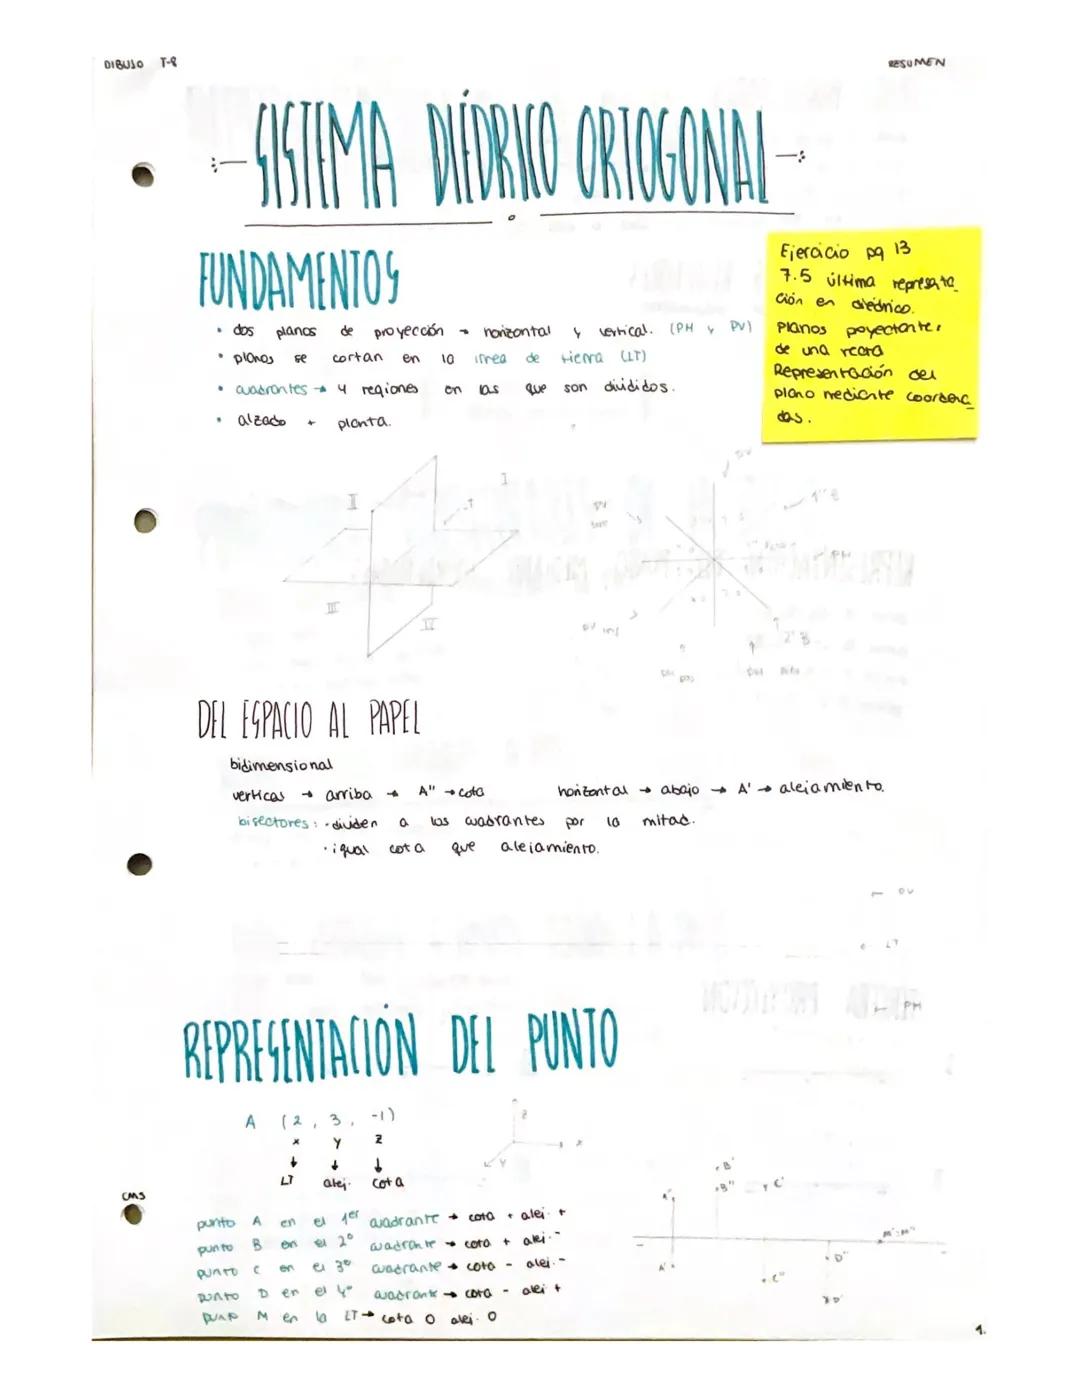 DIBUJO T-8
RESUMEN
SISTEMA DIÉDRICO ORTOGONAL
FUNDAMENTOS
• dos planos de proyección → horizontal y vertical. (PH y PV)
• planos se cortan en la línea de tierra (LT)
• cuadrantes → 4 regiones en las que son divididos.
• alzado + planta.
Ejercicio pg 13
7.5 última representa
ción en diédrico.
Planos poyectantes
de una recta
Representación del
plano mediante coordena
das.
I
II
III
IV
PV
1er B
PV
PH
PV inf
2º B
DEL ESPACIO AL PAPEL
bidimensional
vertical → arriba → A'' → cota
horizontal → abajo → A' → alejamiento.
bisectores: · dividen a los cuadrantes por la mitad.
· igual cota que alejamiento.
← PV
← LT
← PH
REPRESENTACIÓN DEL PUNTO
A (2, 3, -1)
x y z
↓ ↓ ↓
LT alej. cota
z
x
y
CMS
punto A en el 1er cuadrante → cota + alej. +
punto B en el 2º cuadrante → cota + alej. -
punto C en el 3º cuadrante → cota - alej. -
punto D en el 4º cuadrante → cota - alej +
punto M en la LT → cota 0 alej. 0
A''
B'
B''
C'
M'=M''
A'
C''
D''
D'
1.